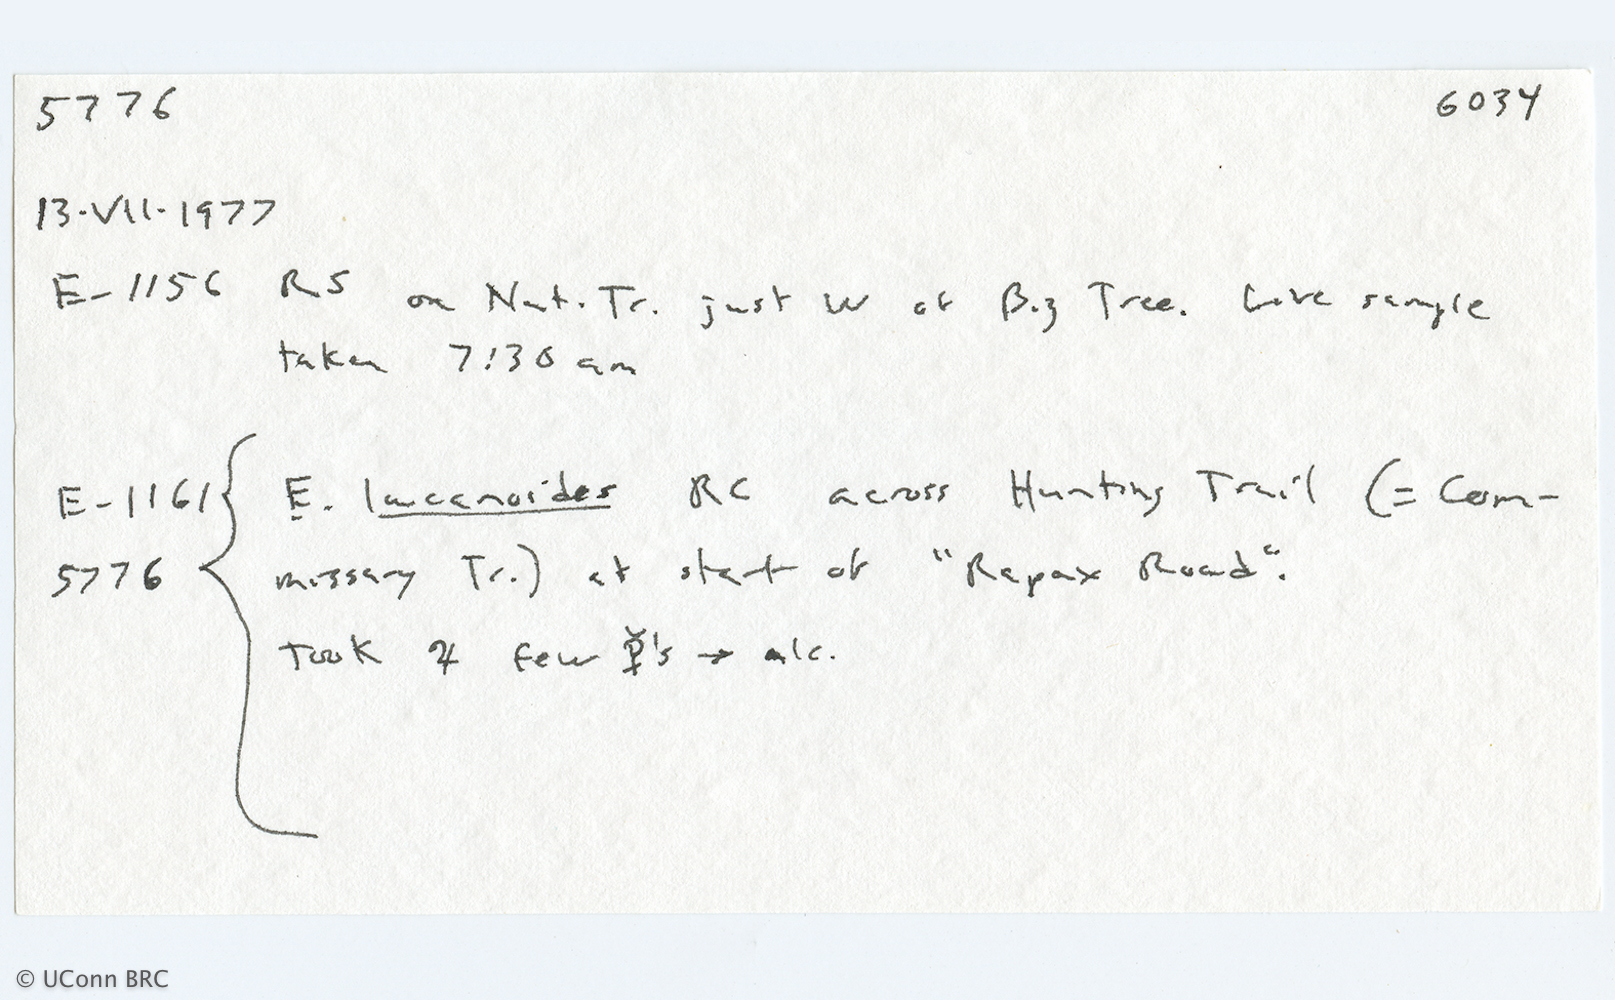 5776 6034
13·VII·1977
E-1156 RS on Nat. Tr. just W of Big Tree. Live sample
taken 7:30 am
E-1161 E. lucanoides RC across Hunting Trail (= Com-
5776 missary Tr.) at start of "Rapax Road".
Took 4 few ☿'s → alc.
© UConn BRC